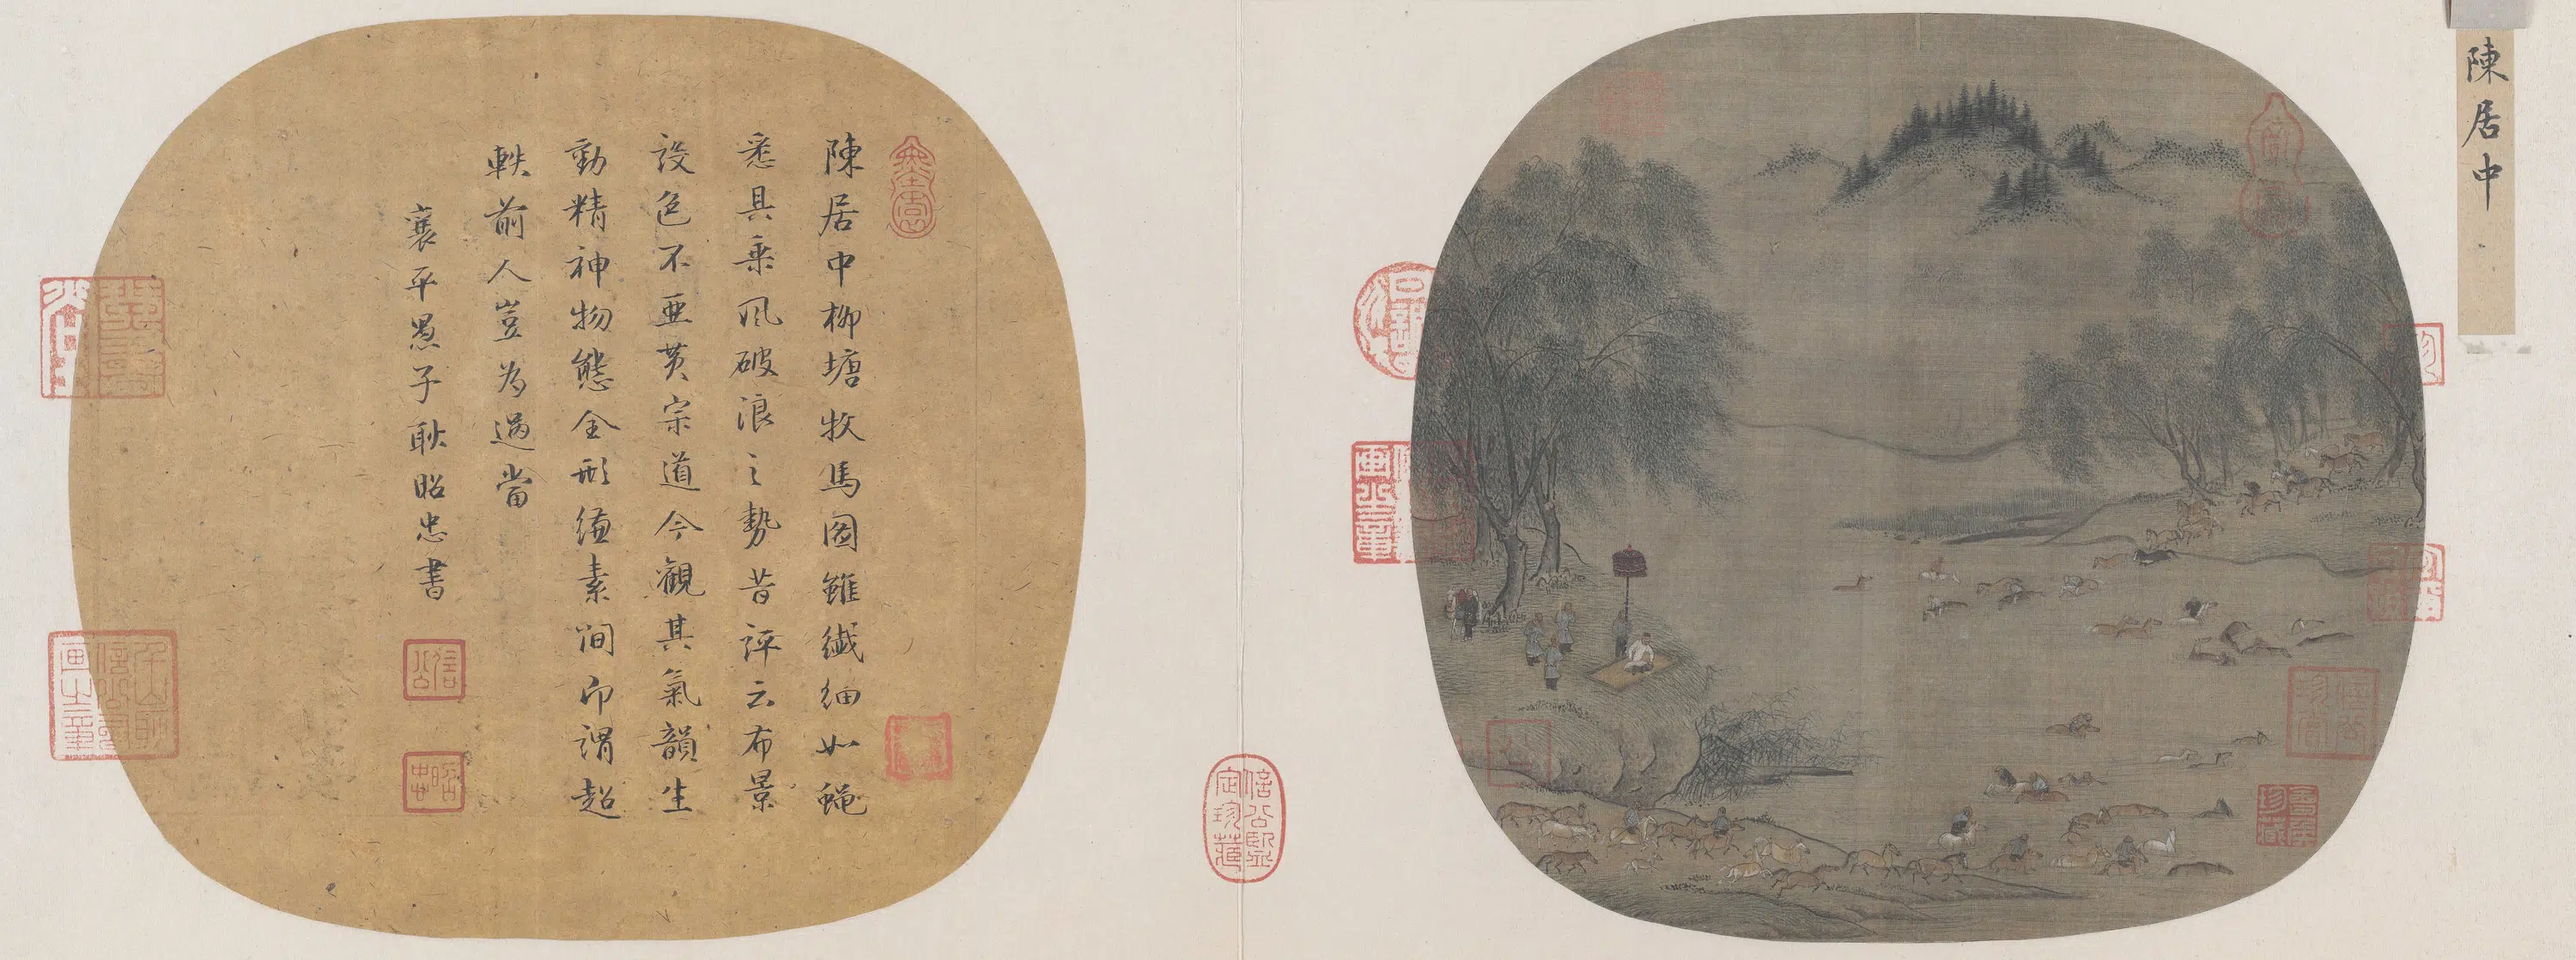 陳居中
陳居中柳塘牧馬圖雖纖細如蠅
悉具乘風破浪之勢昔評云布景
設色不亞黃宗道今觀其氣韻生
動精神物態全形縑素間即謂超
軼前人豈為過當
襄平愚子耿昭忠書
信公
珍賞
信公